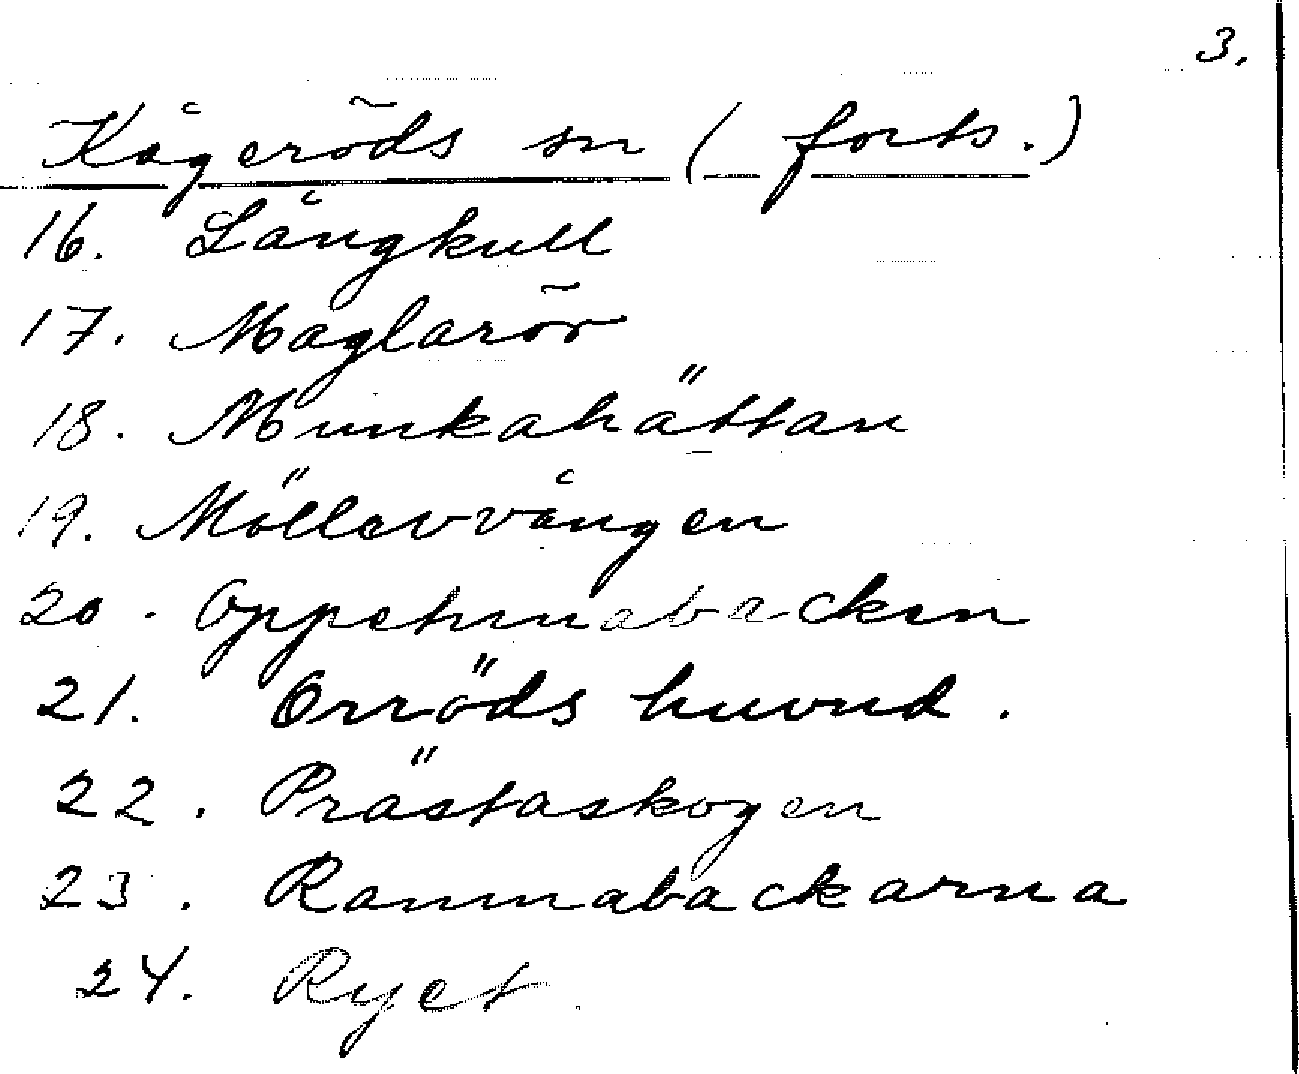 3.
Kågeröds sn (forts.)
16. Långkull
17. Maglarör
18. Munkahättan
19. Möllevvången
20.
21. Orröds huvud.
22. Prästaskogen
23. Rammabackarna
24. Ryet.